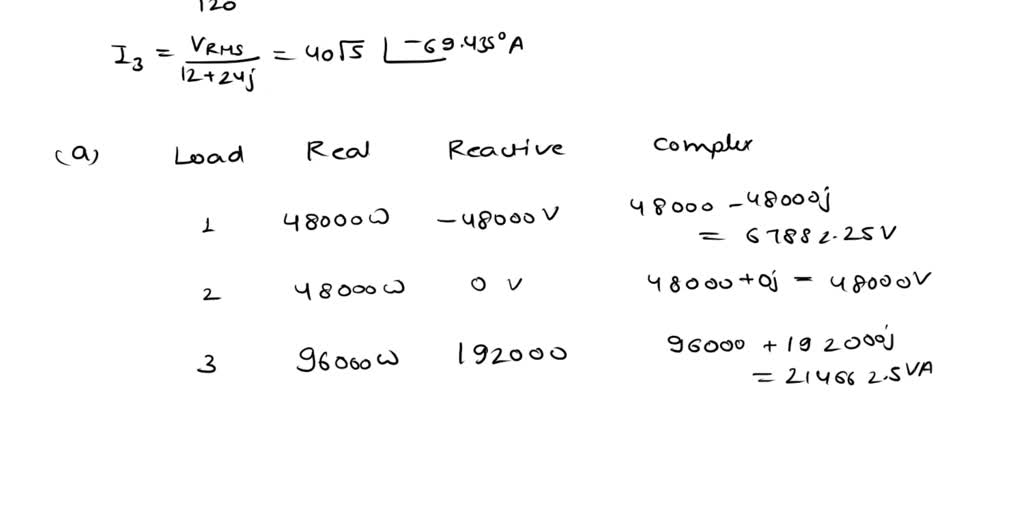 120
I₃ = V_RMS / 12+24j = 40√5 ∠-69.435° A
(a) Load Real Reactive Complex
1 48000 W -48000 V 48000 - 48000j
= 67882.25 V
2 48000 W 0 V 48000+0j = 48000V
3 96000 W 192000 96000 + 192000j
= 214662.5 VA